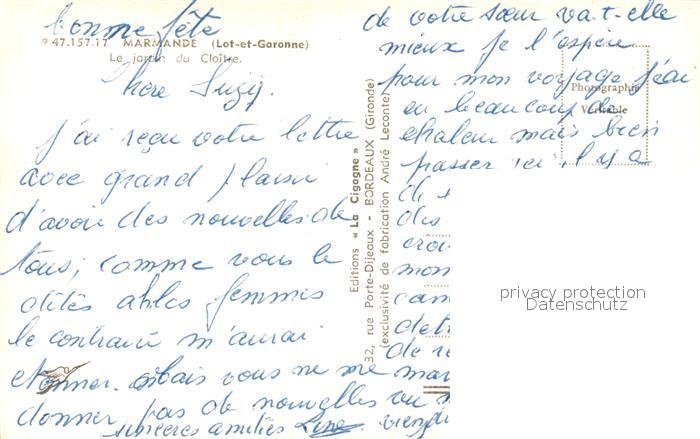 bonne fête
* 47.157.17 MARMANDE (Lot-et-Garonne)
Le jardin du Cloître.
Chère Suzy.
j'ai reçu votre lettre
avec grand plaisir
d'avoir des nouvelles de
tous; comme vous le
dites ahlos femmes
le contraire m'aurai
etonner. Mais vous ne me
donner pas de nouvelles
sincères amitiés Line.
de votre sœur va-t-elle
mieux je l'espère
pour mon voyage j'ai
eu beaucoup de
chaleur mais bien
passer ici il y a
de
des
croi
mon
cam
detr
de re
mar
Photographie
Véritable
Editions « La Cigogne »
32, rue Porte-Dijeaux - BORDEAUX (Gironde)
(exclusivité de fabrication André Leconte)
privacy protection
Datenschutz